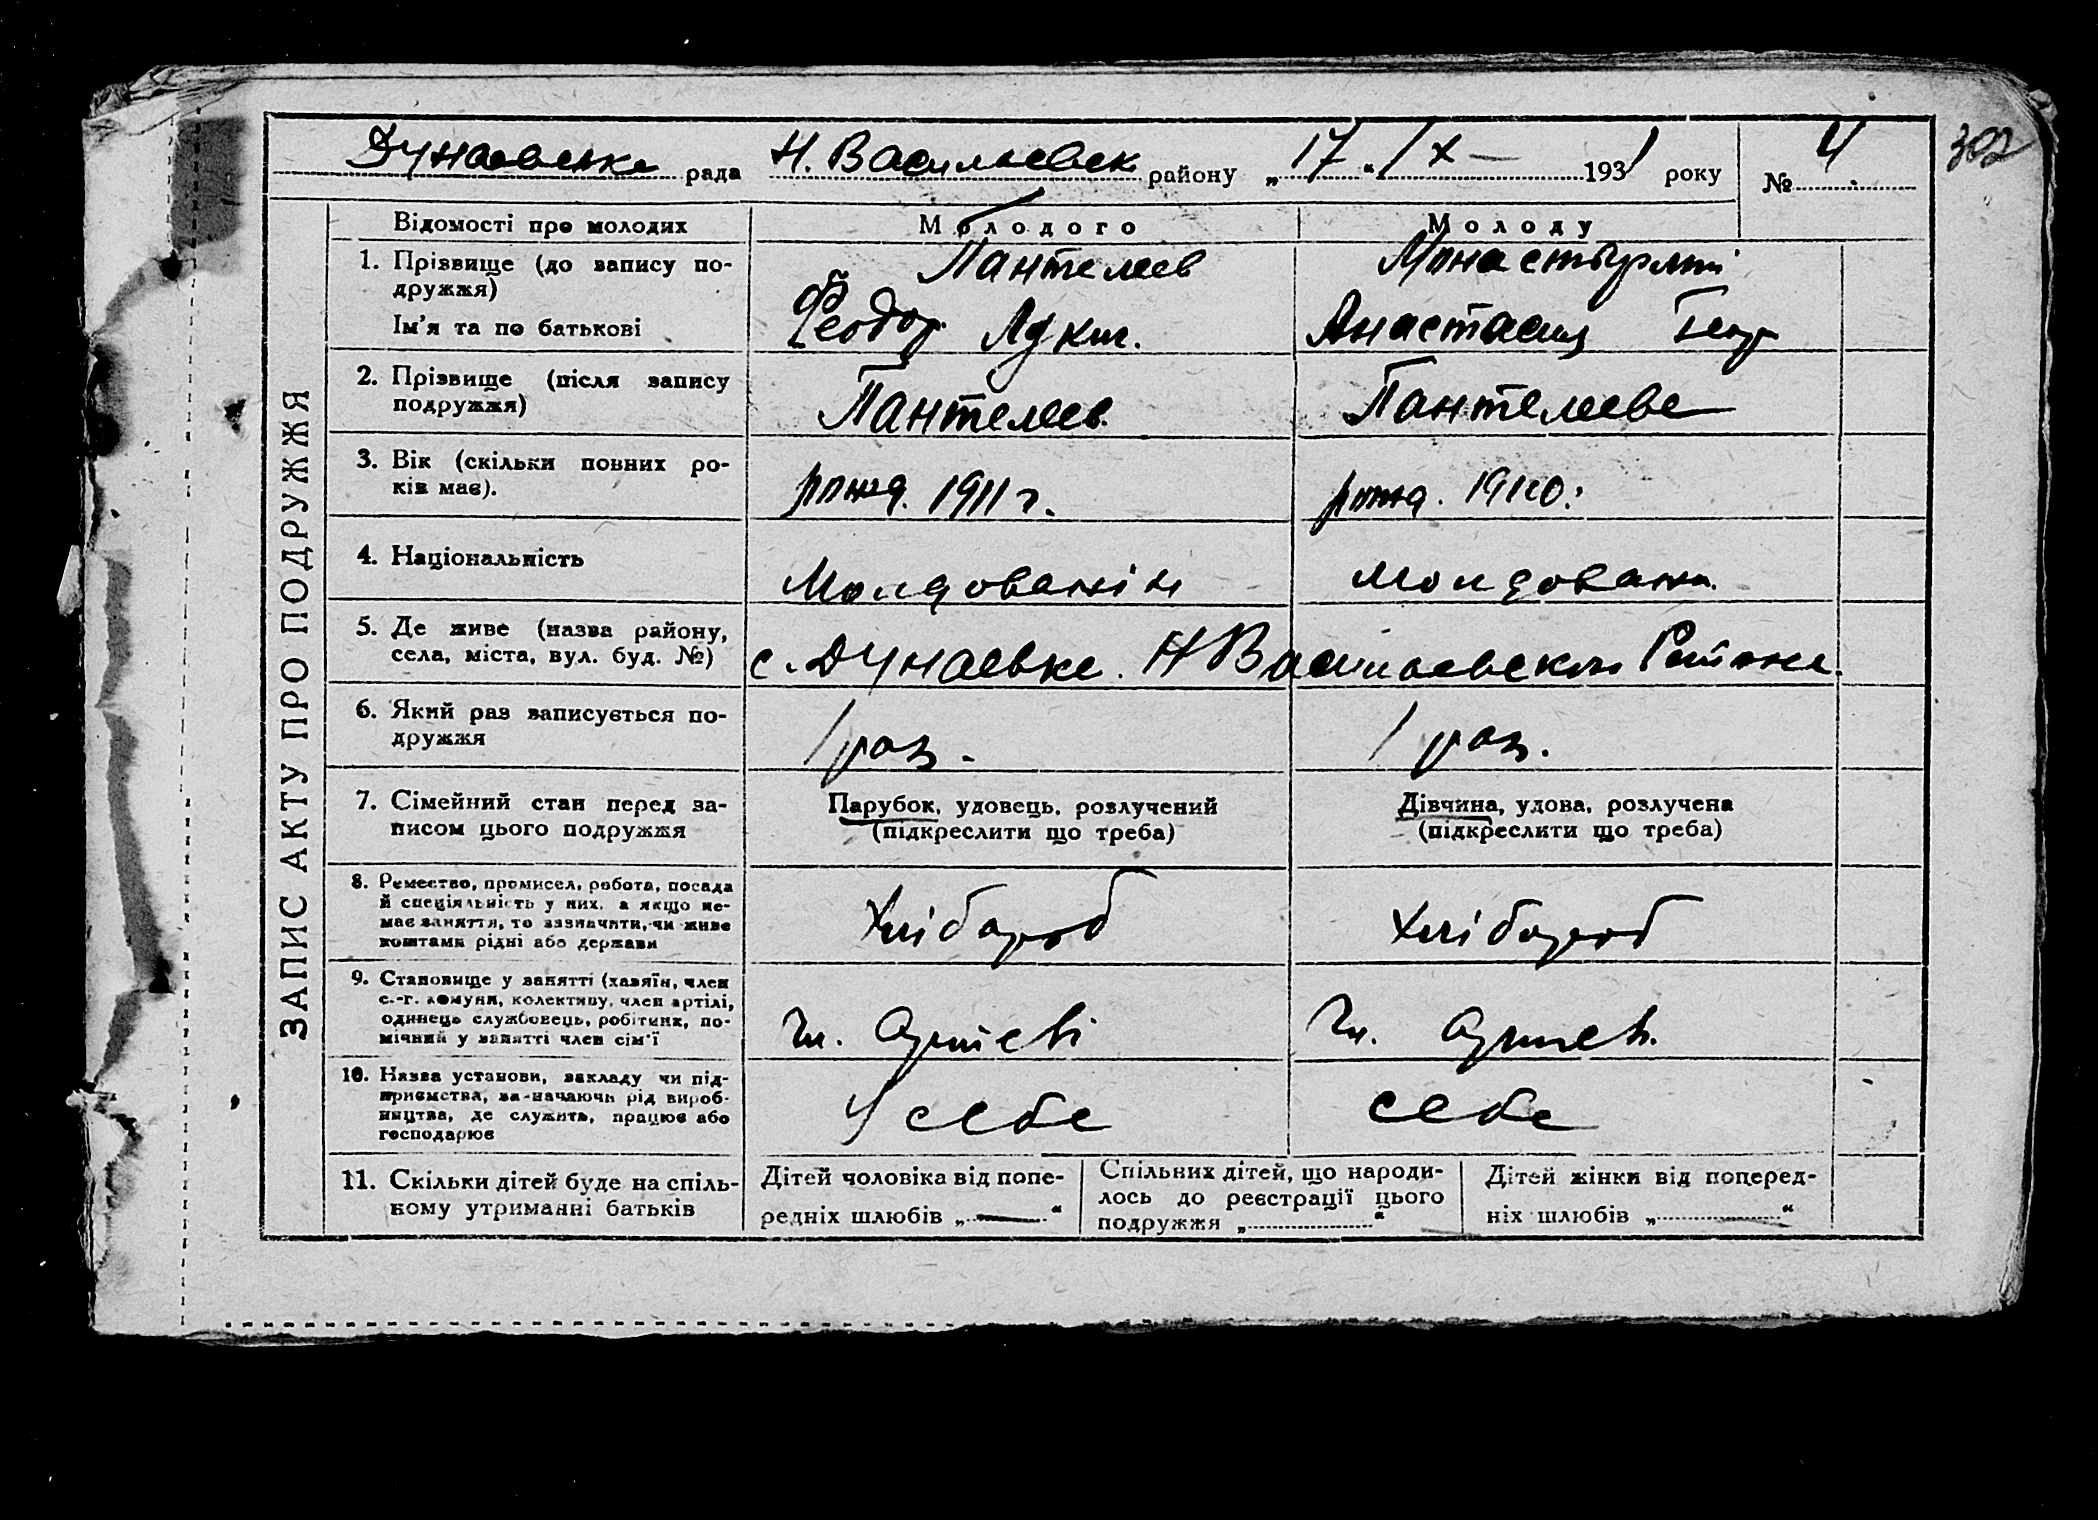 392
Дунаевська рада Н. Васильевск району „17“ /X — 1931 року № 4
ЗАПИС АКТУ ПРО ПОДРУЖЖЯ
Відомості про молодих Молодого Молоду
1. Прізвище (до запису по- Пантелеев
дружжя)
Ім'я та по батькові Феодор Лукич. Анастасия Георг
2. Прізвище (після запису Пантелеев. Пантелеева
подружжя)
3. Вік (скільки повних ро- рожд. 1911 г. рожд. 1910.
ків має).
4. Національність Молдованін молдован.
5. Де живе (назва району, с. Дунаевка. Н Васильевского Району.
села, міста, вул. буд. №)
6. Який раз записується по- 1 раз. 1 раз.
дружжя
7. Сімейний стан перед за- Парубок, удовець, розлучений Дівчина, удова, розлучена
писом цього подружжя (підкреслити що треба) (підкреслити що треба)
8. Ремество, промисел, робота, посада
й спеціяльність у них, а якщо не- Хлібороб Хлібороб
має заняття, то зазначити, чи живе
коштами рідні або держави
9. Становище у занятті (хазяїн, член
с.-г. комуни, колективу, член артілі,
одинець службовець, робітник, по- Чл. Артелі Чл. Артел.
мічний у занятті член сім'ї
10. Назва установи, закладу чи під-
приємства, за-начаючи рід вироб- У себе себе
ництва, де служить, працює або
господарює
11. Скільки дітей буде на спіль- Дітей чоловіка від попе- Спільних дітей, що народи- Дітей жінки від поперед-
ному утриманні батьків редніх шлюбів „—“ лось до реєстрації цього ніх шлюбів „“
подружжя „“